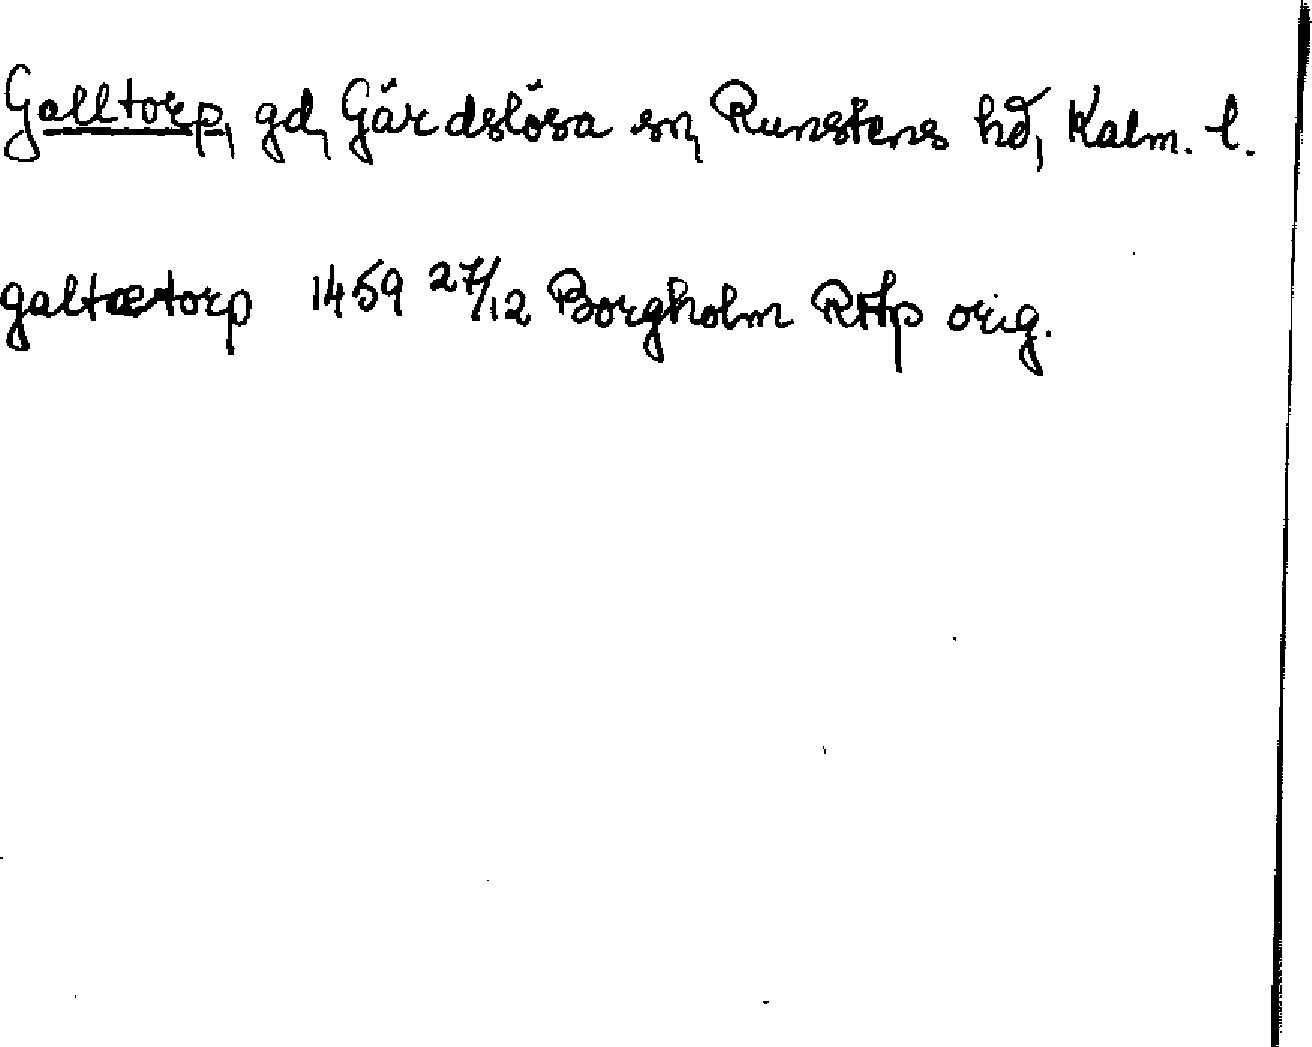 Galltorp, gd, Gärdslösa sn, Runstens hd, Kalm. l.
galtætorp 1459 27/12 Borgholm RAp orig.